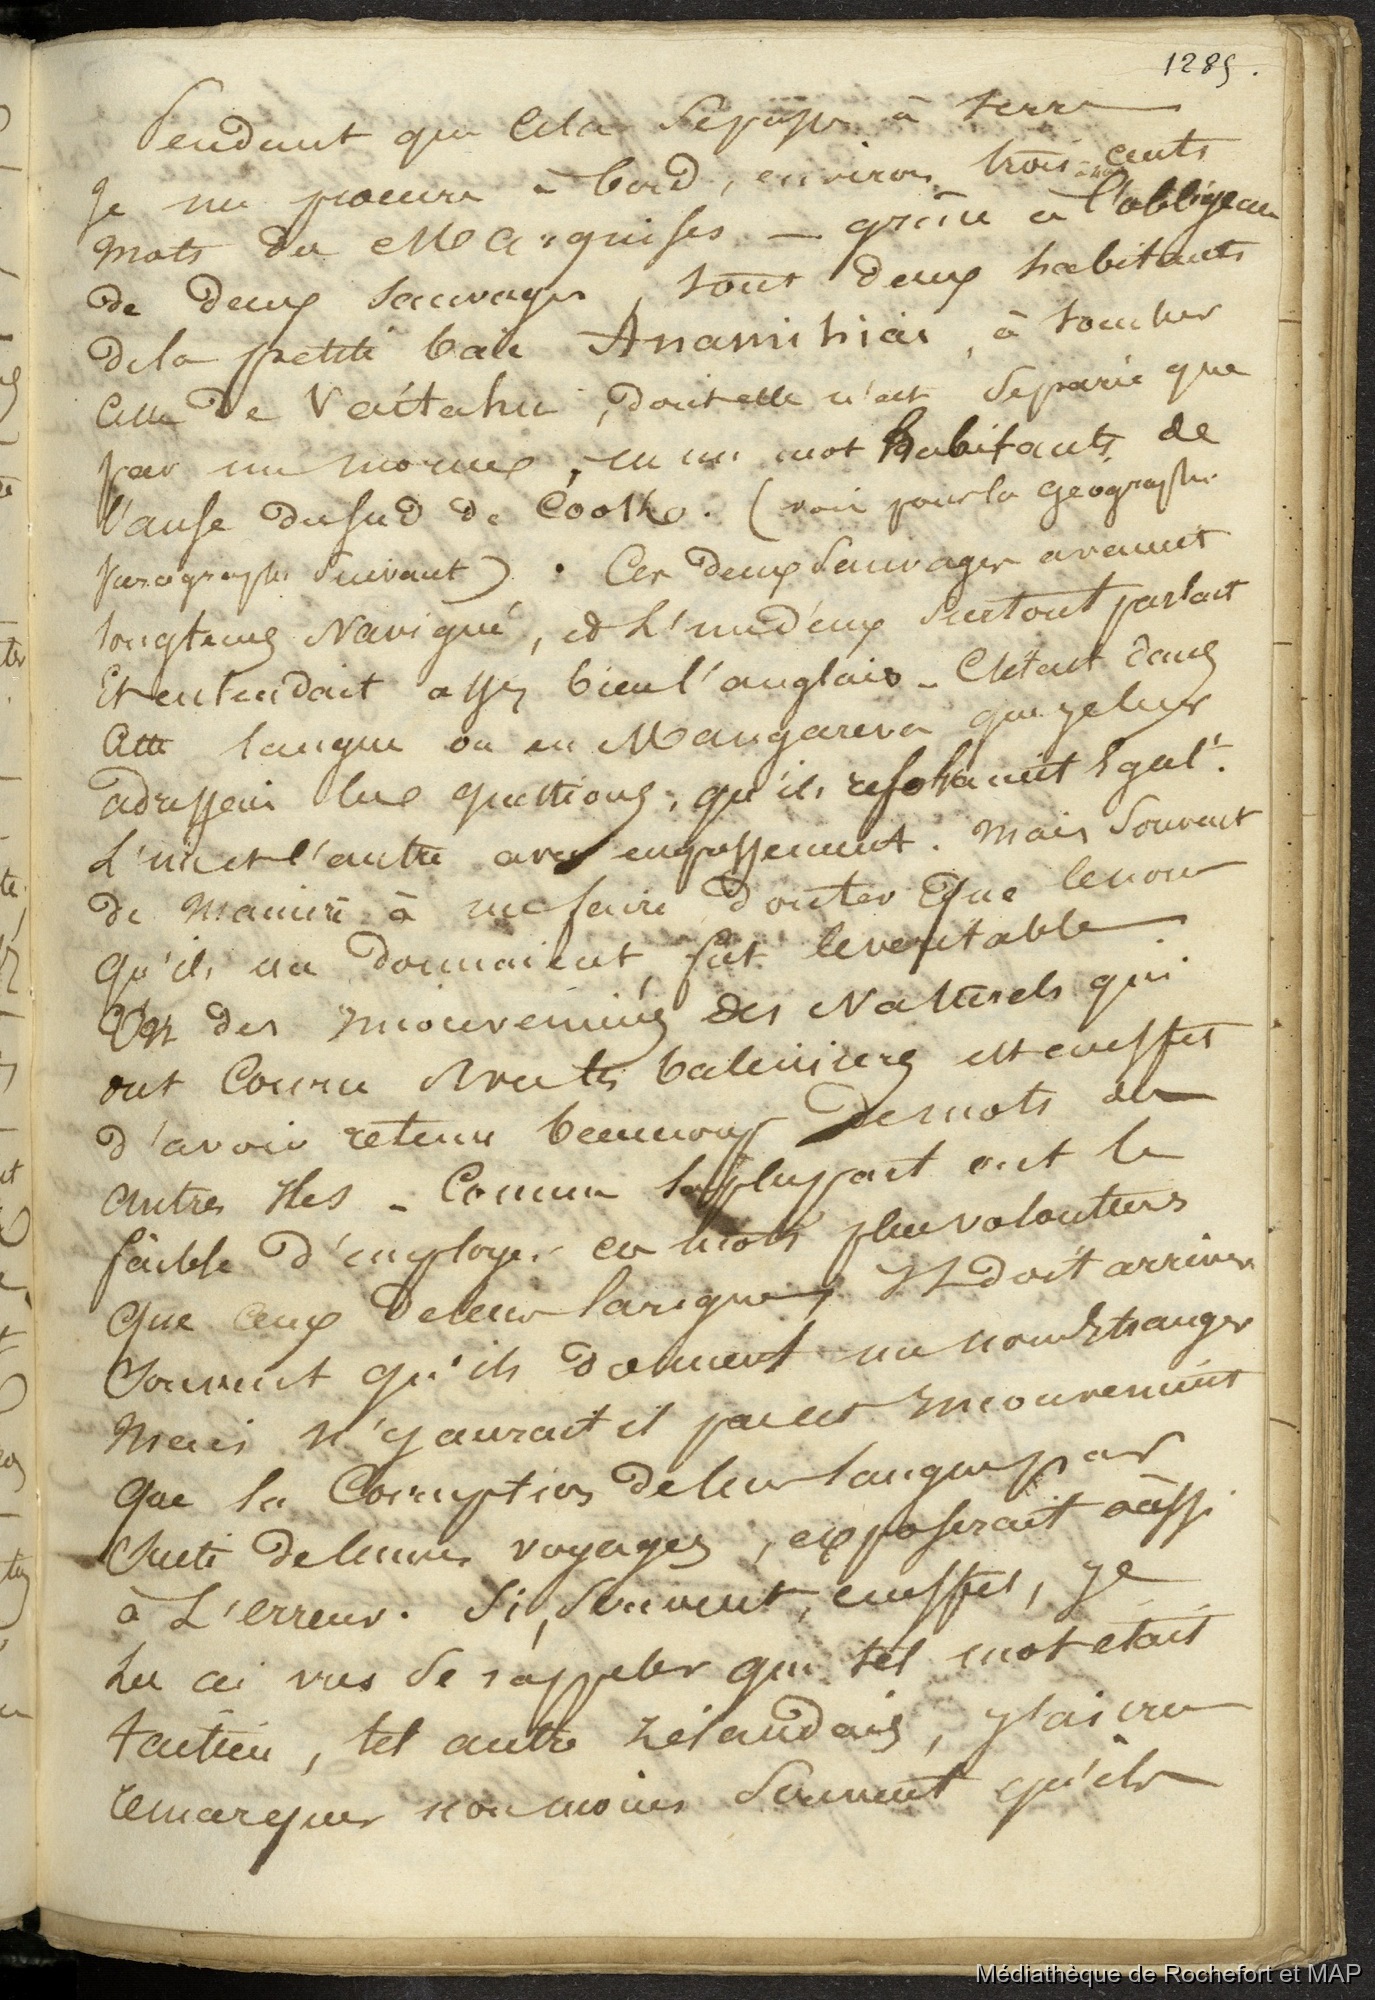 1285.
Pendant que cela se passe à terre
je me procure à bord, environ trois cents
mots des Marquises — grâce à l'obligeance
de deux sauvages, tous deux habitants
de la petite baie Anamihiai, à toucher
celle de Vaitahu, dont elle n'est separée que
par un morne, en un mot habitants de
l'anse du sud de Cook. (voir pour la Géographie
paragraphe suivant). Ces deux sauvages avaient
longtems Navigué, et L'un d'eux surtout parlait
Et entendait assez bien l'anglais - C'était dans
cette langue ou en Mangareva que je leur
adressais les questions, qu'ils resolvaient égalt.
L'un et l'autre avec empressement. Mais souvent
de maniere à me faire douter que le nom
qu'ils me donnaient fut le veritable
Un des mouvemens des Naturels qui
ont couru sur les baleiniers est en effet
d'avoir retenu beaucoup de mots des
autres Iles - Comme la plupart ont le
faible d'employer ces mots plus volontiers
que ceux de leur langue, Il doit arriver
souvent qu'ils donnent un nom Etranger
Mais n'y aurait il pas
que la Corruption de leur langue par
suite de leurs voyages, exposerait aussi
à L'erreur. Si, souvent, en effet, je
les ai vus se rappeler que tel mot était
taïtien, tel autre zélandais, j'ai cru
remarquer non moins souvent qu'ils
Médiathèque de Rochefort et MAP